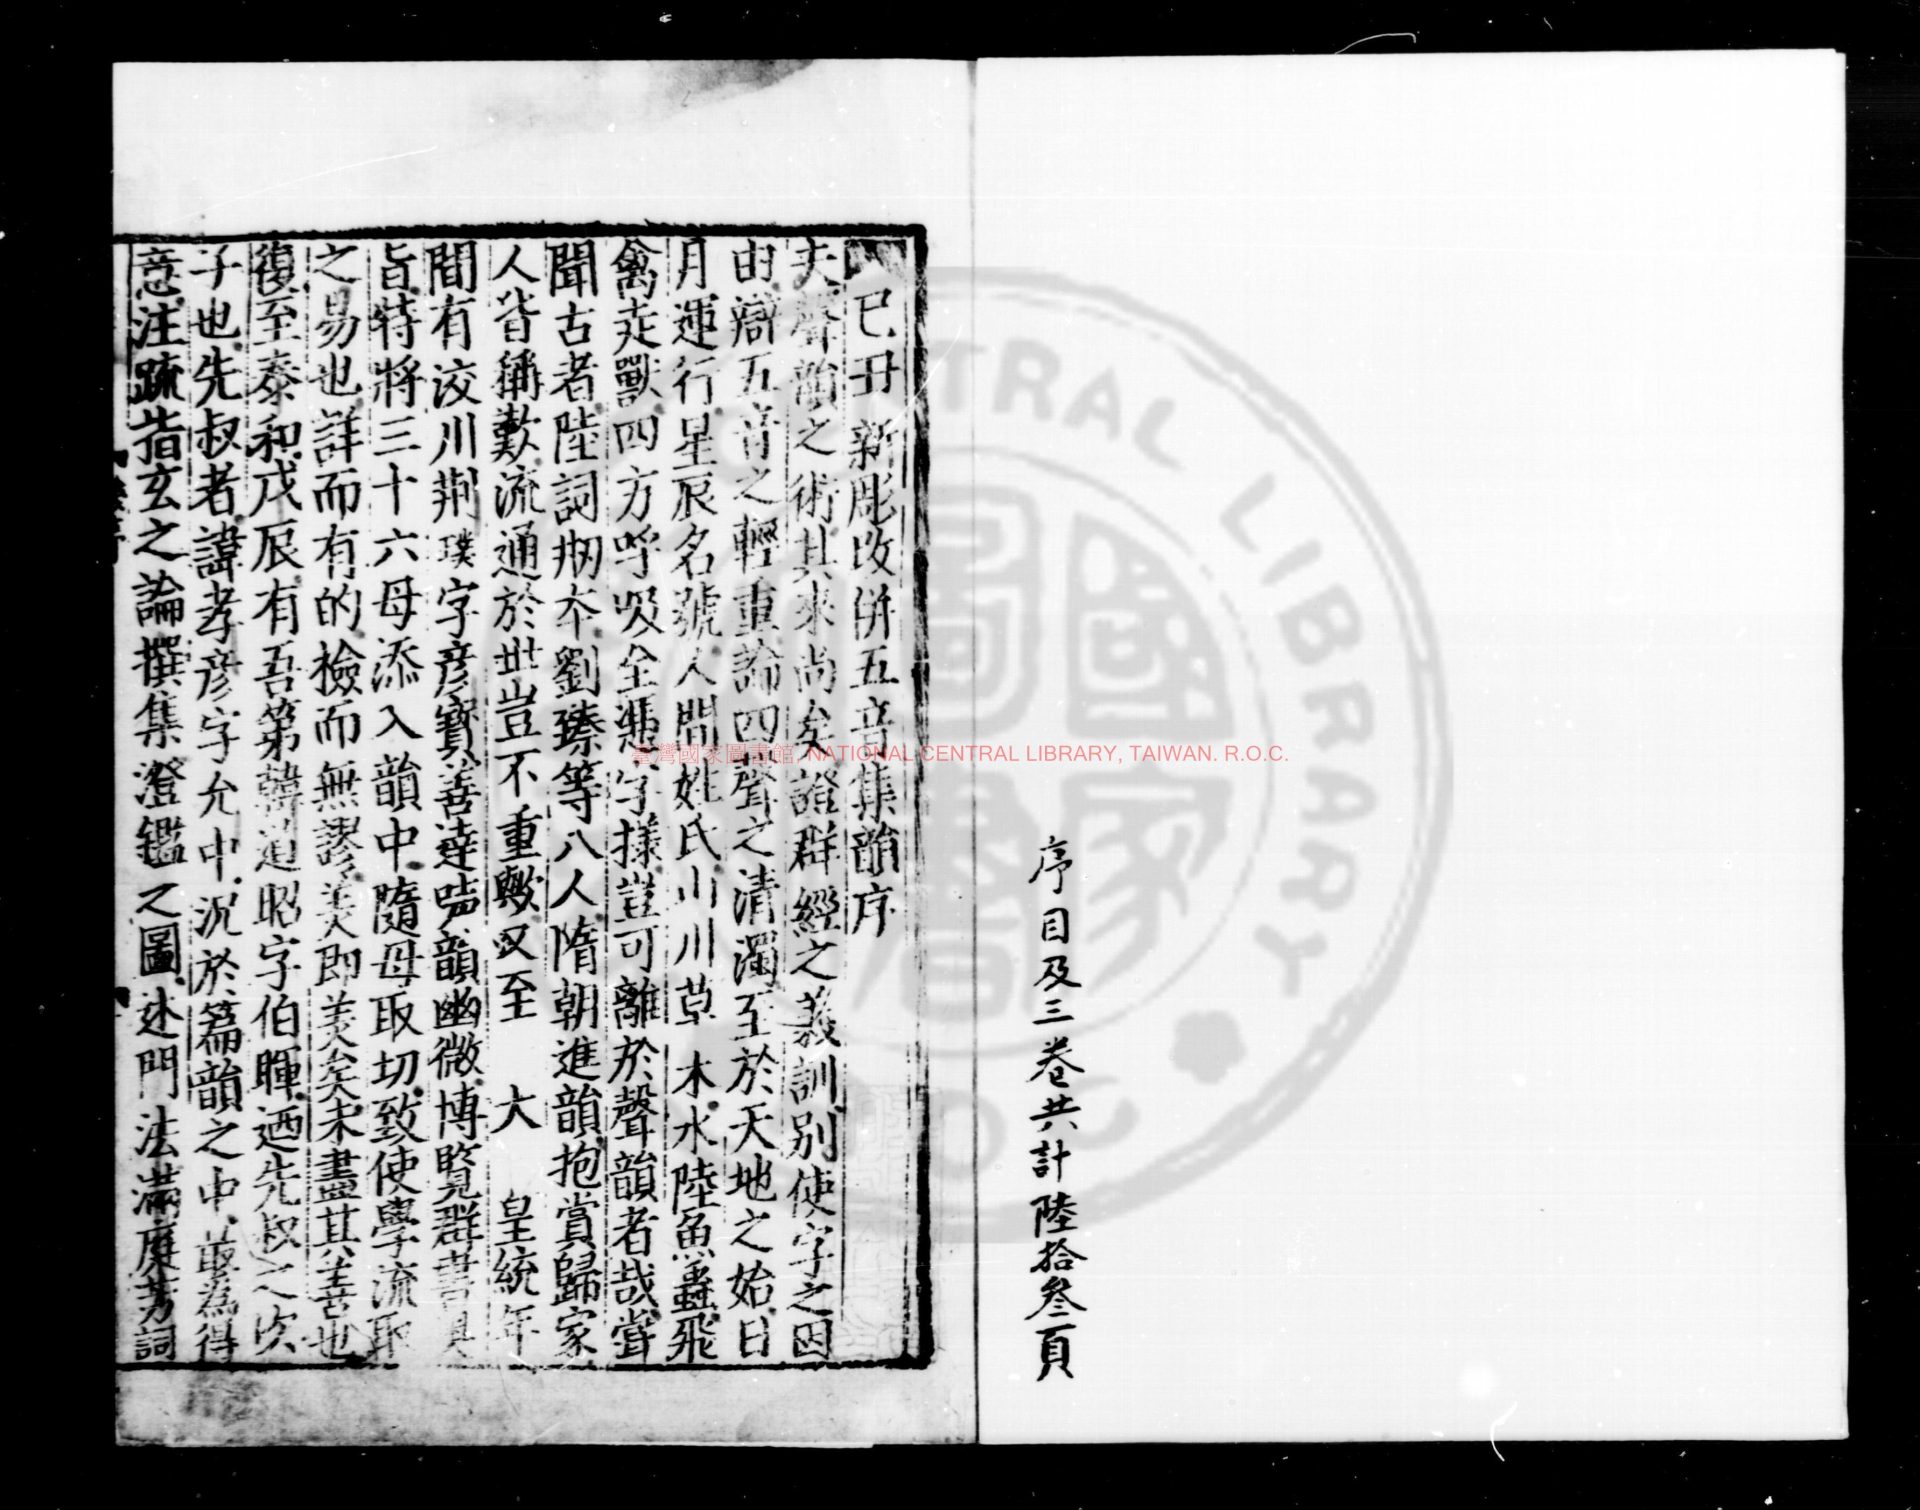 序目及三卷共計陸拾叄頁
己丑新彫改併五音集韻序
夫聲韻之術其來尚矣證群經之義訓別使字之因
由辯五音之輕重論四聲之清濁至於天地之始日
月運行星辰名號人間姓氏山川草木水陸魚蟲飛
禽走獸四方呼吸全憑字㨾豈可離於聲韻者哉嘗
聞古者陸詞刱本劉臻等八人隋朝進韻抱賞歸家
人皆稱歎流通於世豈不重歟又至 大 皇統年
間有洨川荆璞字彥寶善達聲韻幽微博覽群書奥
旨特將三十六母添入韻中隨母取切致使學流取
之易也詳而有的檢而無謬美即美矣未盡其善也
復至泰和戊辰有吾弟韓道昭字伯暉廼先叔之次
子也先叔者諱孝彥字允中況於篇韻之中最爲得
意注疏指玄之論撰集澄鑑之圖述門法滿庭芳詞
臺灣國家圖書館, NATIONAL CENTRAL LIBRARY, TAIWAN. R.O.C.